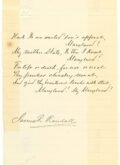 Hark to an exiled son's appeal,
Maryland!
My mother State, to thee I kneel,
Maryland!
For life or death, for woe or weal,
Thy peerless chivalry reveal,
And gird thy beauteous limbs with steel,
Maryland! My Maryland!
James R. Randall